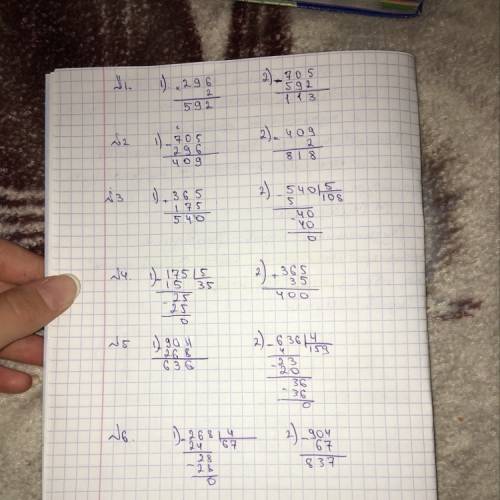 №1. 1) × 296 2) - 705
2 592
592 113
№2 1) - 705 2) × 409
296 2
409 818
№3 1) + 365 2) - 540 | 5
175 5 108
540 - 40
40
0
№4. 1) - 175 | 5 2) + 365
15 35 35
- 25 400
25
0
№5 1) 904 2) - 636 | 4
268 4 159
636 - 23
20
- 36
36
0
№6. 1) - 268 | 4 2) - 904
24 67 67
- 28 837
28
0